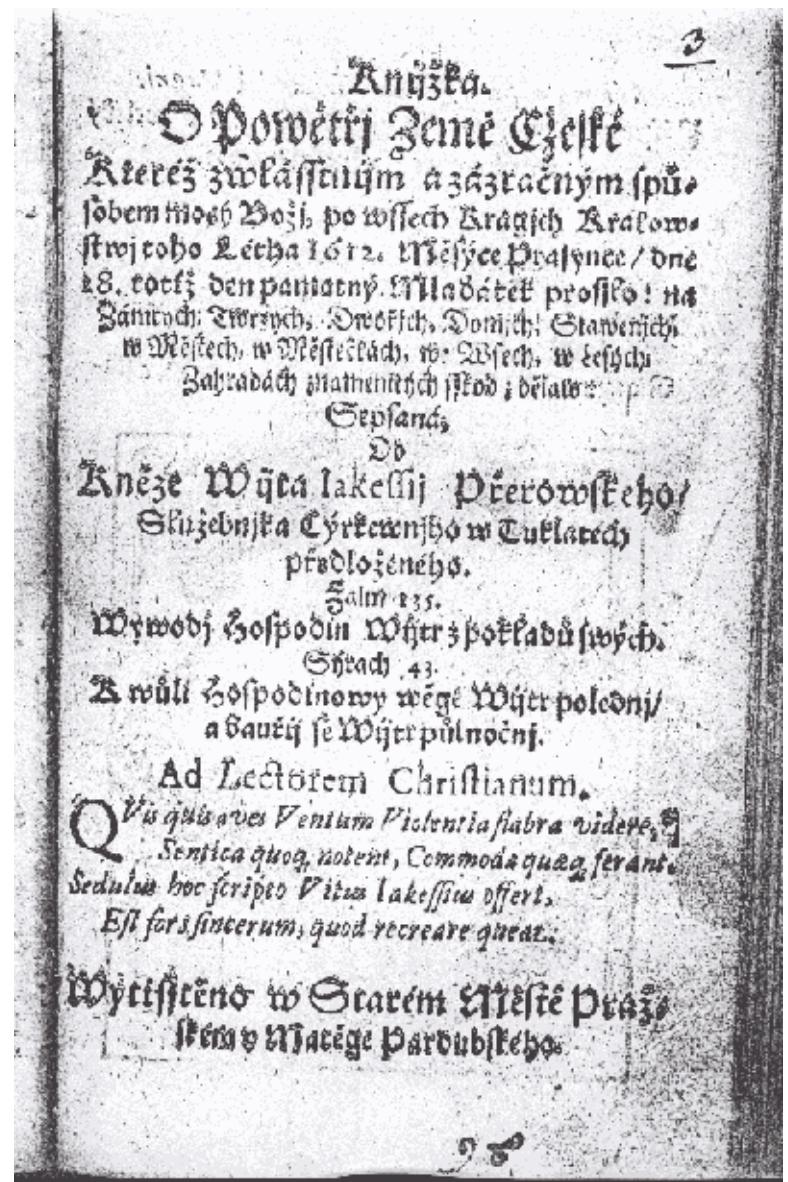 3
Knijžka.
O Powětřj Země Cžeské
Kteréž zwlásstnijm a zázračným spů-
sobem mocý Boží, po wssech Kragjch Králow-
stwj toho Létha 1612. Měsýce Prasynce / dne
28. totiž den pamatný Mladátek prossko: na
Zámcých, Twrzých, Dwořjch, Domjch, Stawenjch,
w Městech, w Městečkách, we Wsech, w Lesých,
Zahradách znamenitých sskod zdělaw:
Sepsaná,
Od
Kněze Wijta Iakessij Přerowského /
Služebnjka Cýrkewnjho w Tuklatech
předloženého.
Žalm 135.
Wywodj Hospodin Wijtr z pokladů swých.
Sýrach 43.
K wůli Hospodinowy wěge Wijtr polednj /
a bauřij se Wijtr půlnočnj.
Ad Lectorem Christianum.
QVis quis aves Ventum Violentia flabra videre,
Sentica quoq; notent, Commoda quæq; ferant.
Sedulus hoc scripto Vitus Iakessius offert,
Est fors sincerum, quod recreare queat.
Wytisstěno w Starém Městě Praž-
ském v Matěge Pardubského.